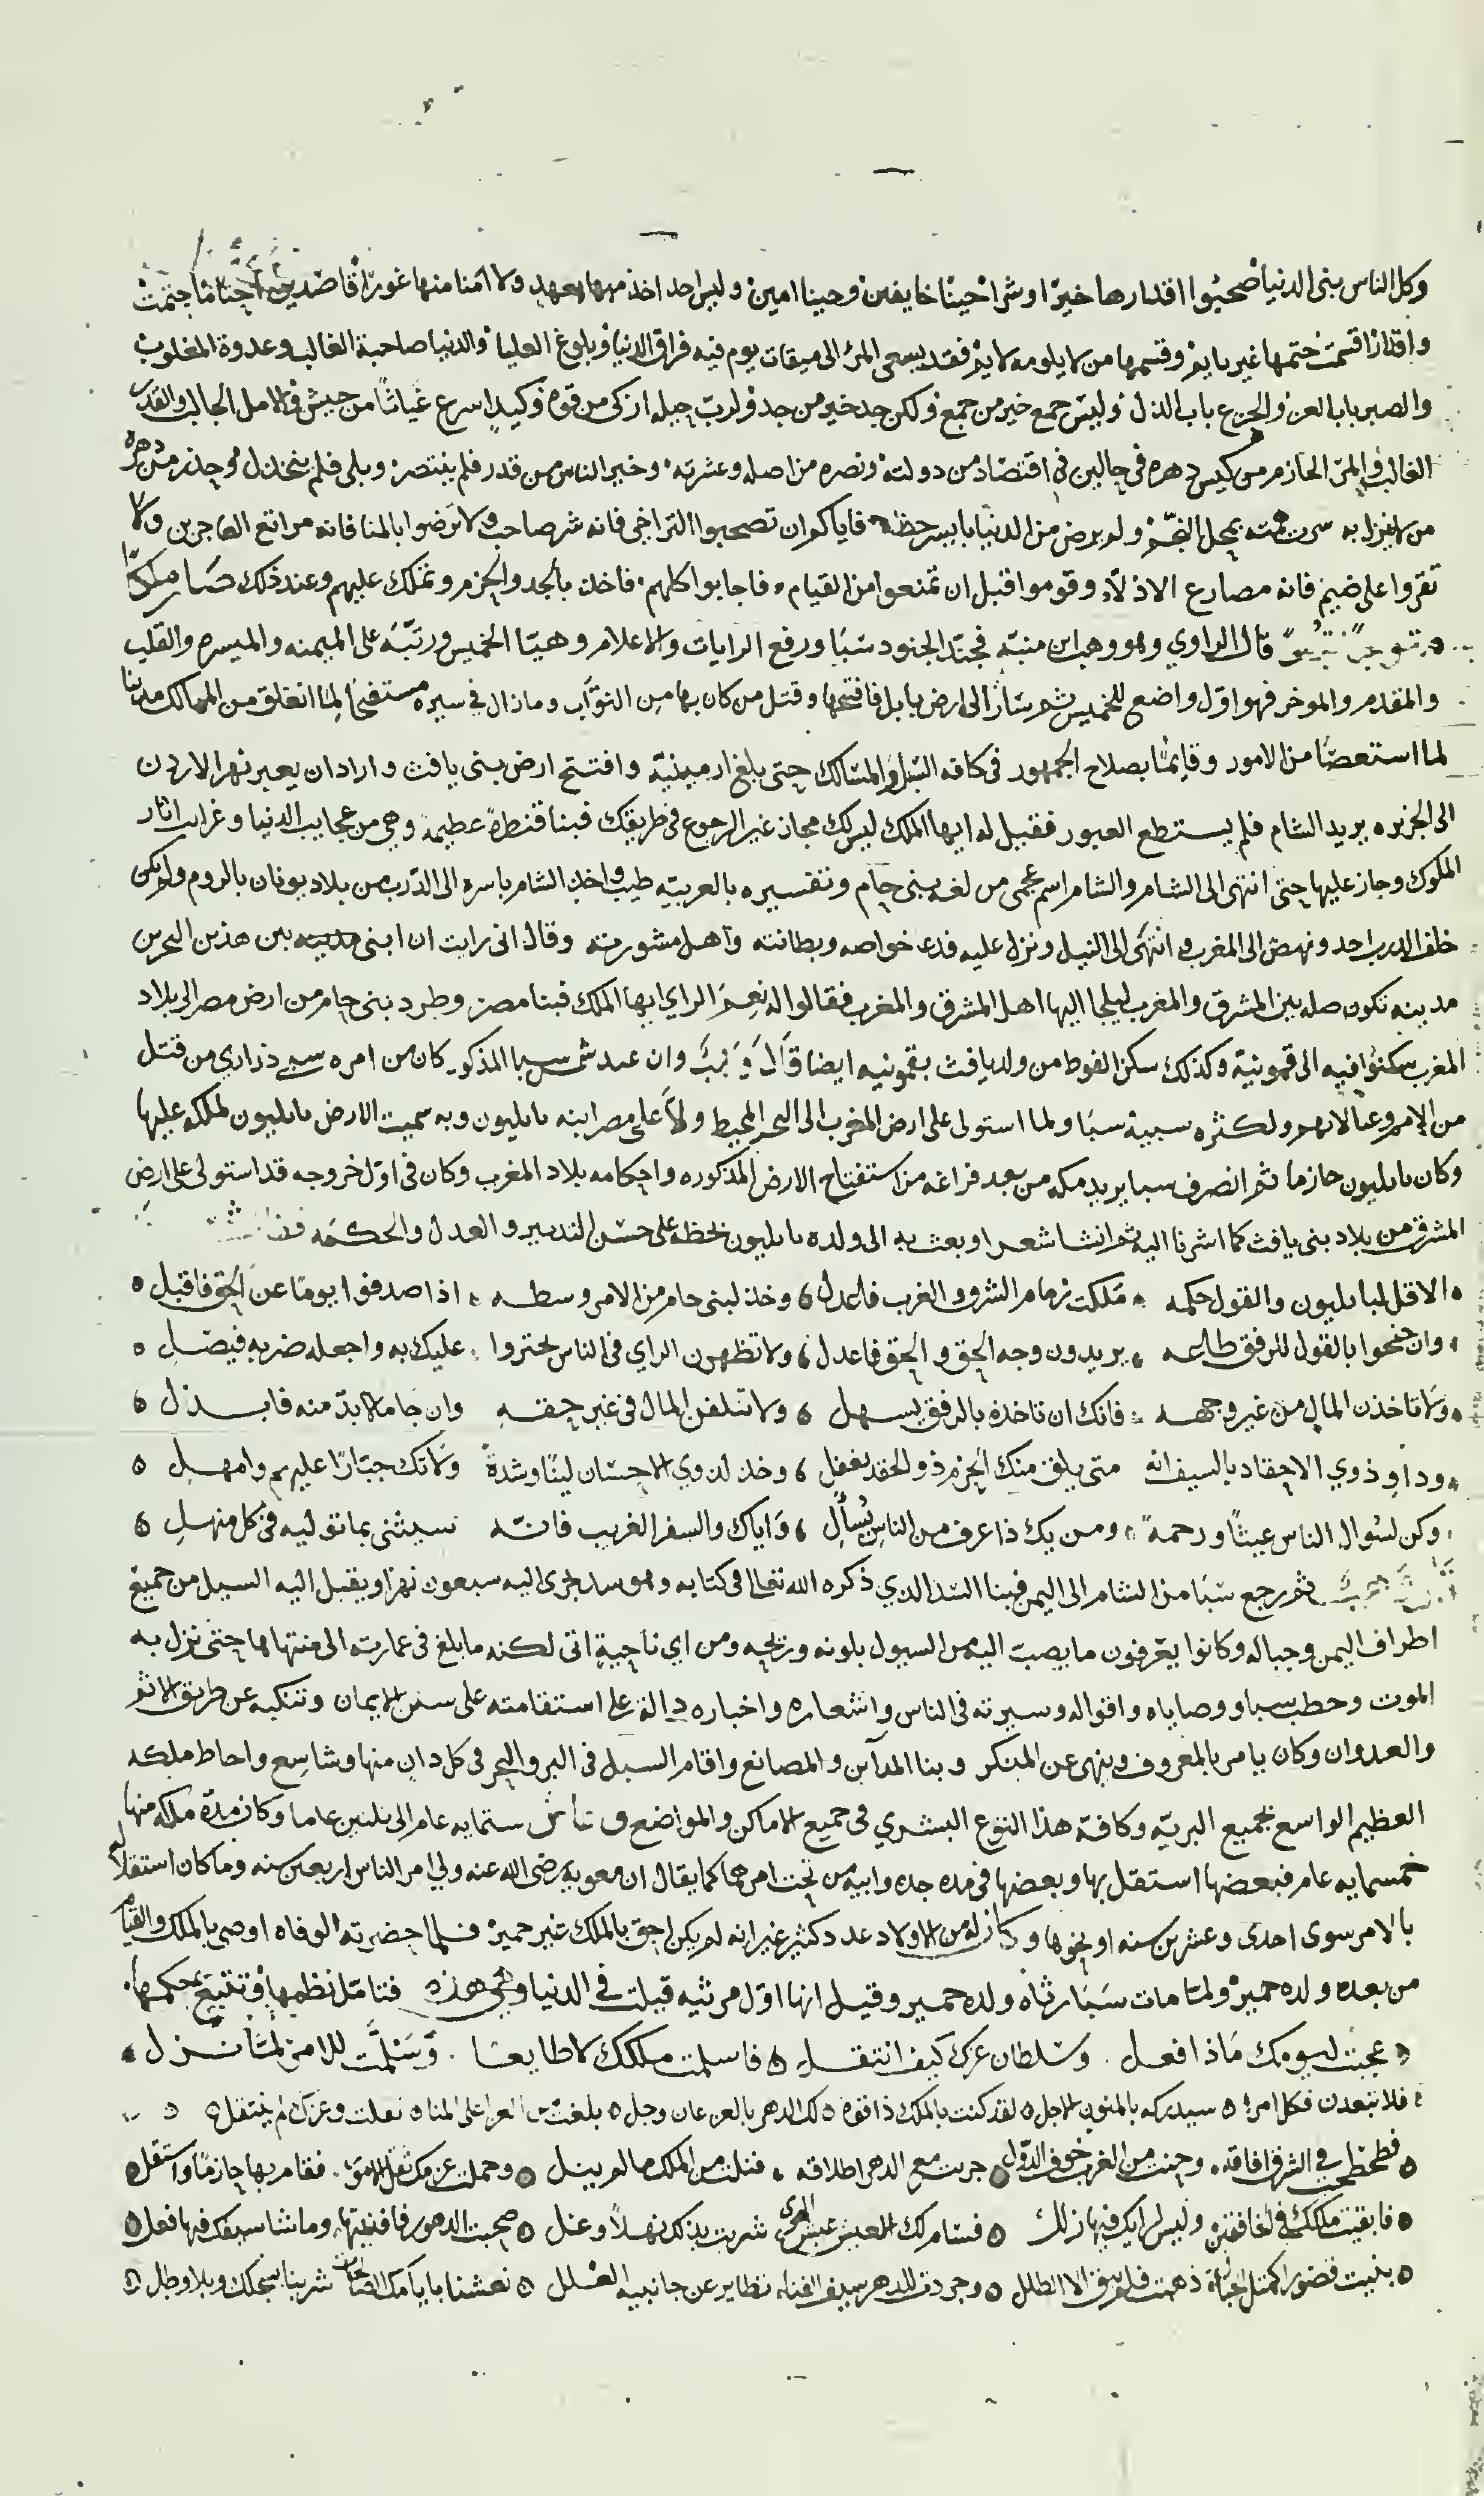 وكل الناس بنى الدنيا صحبوا اقدارها خيرًا وشرا حينًا خايفين وحينا امين وليس احد اخذ منها بعهد ولا امنا منها غورًا
واقدارا قسمت ختمها غير يا يؤ وقسمها من لا يلومه لايؤ فقد يسعى المرؤ الى ميقات يوم فيه فراق الدنيا وبلوغ العليا والدنيا صاحبة الغالب وعدوة المغلوب
والصبر باب العز والجزع باب الذل وليس جمع خير من جمع ولكن جد خير من جد ولرب حيله ازكى من قوه وكيد اسرع غياثًا من جيش في الامل الخالب والقدر
الغالب والمرؤ الحازم من كيس دهره في حالين في اقتصاد من دولته ونصره من اصله وعشرته وخير الناس من قدر فلم ينتصر وبلى فلم ينخذل
من لا ينزل به سرت همته بمحل النجم ولم يرض من الدنيا بايسر حظه فاياكم ان تصحبوا التراخي فانه شر صاحب ولا ترضوا بالمنا فانه مراتع العاجزين ولا
تقروا على ضيم فانه مصارع الاذلا وقوموا قبل ان تمنعوا من القيام فاجابوا كلهم فاخذ بالجد والحزم وتملك عليهم وعند ذلك صار ملكًا
متوجًا قال الراوي وهو وهب ابن منبه فجند الجنود سبًا ورفع الرايات والاعلام وهيا الخميس ورتبه على الميمنه والميسره والقلب
والمقدم والموخر فهو اول واضع للخميس ثم سار الى ارض بابل فافتتحها وقتل من كان بها من النواب وما زال في سيره مستفتحا لما انغلق من الممالك مدينا
لما استعصا من الامور وقايمًا بصلاح الجمهور في كافه السبل والمسالك حتى بلغ ارمينية وافتتح ارض بنى يافث واراد ان يعبر نهر الاردن
الى الجزيره يريد الشام فلم يستطع العبور فقيل له ايها الملك ليس لك مجاز غير الرجوع في طريقك فبنا قنطرة عظيمة وهي من عجايب الدنيا وغرايب اثار
الملوك وجاز عليها حتى انتهى الى الشام والشام اسم عجمى من لغه بنى حام وتفسيره بالعربيه طيب واخذ الشام باسره الى الدرب من بلاد يونان بالروم ولم يكن
خلف الدرب احد ونهض الى المغرب فانتهى الى النيل ونزل عليه فدعا خواصه وبطانته واهل مشورته وقال انى رايت ان ابنى مدينه بين هذين البحرين
مدينه تكون صله بين المشرق والمغرب ليلجا اليها اهل المشرق والمغرب فقالوا له نعم الراي ايها الملك فبنا مصر وطرد بنى حام من ارض مصر الى بلاد
المغرب سكنوا فيه الى قمونية وكذلك سكن القوط من ولد يافث بقمونيه ايضا قال وهب وان عبد شمس سبا المذكور كان من امره سبى ذراري من قتل
من الامم وعيالاتهم ولكثره سبيه سبا ولما استولى على ارض المغرب الى البحر المحيط ولا على مصر ابنه بابليون وبه سميت الارض بابليون لملكه عليها
وكان بابليون حازما ثم انصرف سبا يريد مكه من بعد فراغه من استفتاح الارض المذكوره واحكامه بلاد المغرب وكان في اول خروجه قد استولى على ارض
المشرق من بلاد بنى يافث كما اشرنا اليه ثم انشا شعرا وبعث به الى ولده بابليون يحظه على حسن التدبير والعدل والحكمه
الا قل لبابليون والقول حكمه ملكت زمام الشرق والغرب فاعدل وخذ لبنى حام من الامر وسطه اذا صدفوا يومًا عن الحق فاقبل
وان جنحوا بالقول للرفق طاعه يريدون وجه الحق والحق فاعدل ولا تظهرن الراي في الناس يجتروا عليك به واجعله ضربه فيصل
ولا تاخذن المال من غير وجهه فانك ان تاخذه بالرفق يسهل ولا تتلفن المال في غير حقه وان جا ما لا بد منه فابذل
وداو ذوي الاحقاد بالسيف انه متى يلق منك الحزم ذو الحقد يغفل وخذ لذوي الاحسان لينًا وشدة ولا تك جبارًا عليهم وامهل
وكن لسوال الناس غيثًا ورحمة ومن يك ذا عرف من الناس يسأل واياك والسفر الغريب فانه سيثنى بما توليه في كل منهل
ثم رجع سبا من الشام الى اليمن فبنا السد الذي ذكره الله تعالى في كتابه وهو سد يجرى اليه سبعون نهرا ويقبل اليه السيل من جميع
اطراف اليمن وجباله وكانوا يعرفون ما يصب اليه من السيول بلونه وريحه ومن اي ناحية اتى لكنه ما بلغ في عمارته الى منتهاها حتى نزل به
الموت وخطب سبا ووصاياه واقواله وسيرته في الناس واشعاره واخباره دالة على استقامته على سنن الايمان وتنكبه عن طريق الاثم
والعدوان وكان يامر بالمعروف وينهى عن المنكر وبنا المدآين والمصانع واقام السبل في البر والبحر في كل دان منها وشاسع واحاط ملكه
العظيم الواسع بجميع البريه وكافه هذا النوع البشري في جميع الاماكن والمواضع وعاش ستمايه عام الى ثلثين عاما وكان مدة ملكه منها
خمسمايه عام فبعضها استقل بها وبعضها في مده جده وابيه من تحت امرهما كما يقال ان معوية رضى الله عنه ولي امر الناس اربعين سنه وما كان استقلاله
بالامر سوى احدى وعشرين سنه او نحوها وكان له من الاولاد عدد كثير غير انه لم يكن احق بالملك غير حمير فلما حضرته الوفاه اوصى بالملك والقيام
من بعده ولده حمير ولما مات سبا رثاه ولده حمير وقيل انها اول مرثيه قيلت في الدنيا وهي هذه فتامل نظمها وتتبع محكمها
عجبت ليومك ماذا فعل وسلطان عزك كيف انتقل فاسلمت ملكك لا طايعًا وسلمت للامر لما نزل
فلا تبعدن فكل امرئ سيدركه بالمنون الاجل لقد كنت بالملك ذا قوه لك الدهر بالعز عان وجل
فطحطحت في الشرق افاقه وجئت من الغرب خوف الدول جريت مع الدهر اطلاقه فنلت من الملك ما لم ينل وحملت عزمك ثقل الامور فقام بها حازمًا واستقل
فابقيت ملكك وليس لرايك فيها زلل فسامر لك العيش شربت بذلك نهلاً وعل صحبت الدهور فافنيتها وما شا سيفك فيها فعل
بنيت قصورا كمثل الجبال ذهبت فلم يبق الا الطلل وجردت للدهر سيف الفناء تطاير عن جانبيه القلل نعشنا بايامك الصالحات شربنا بسجلك وبلا وطل